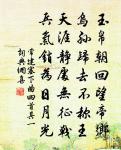 玉帛朝回望帝鄉
烏孫歸去不稱王
天涯靜處無征戰
兵氣銷為日月光
常建塞下曲四首其一
詞典網